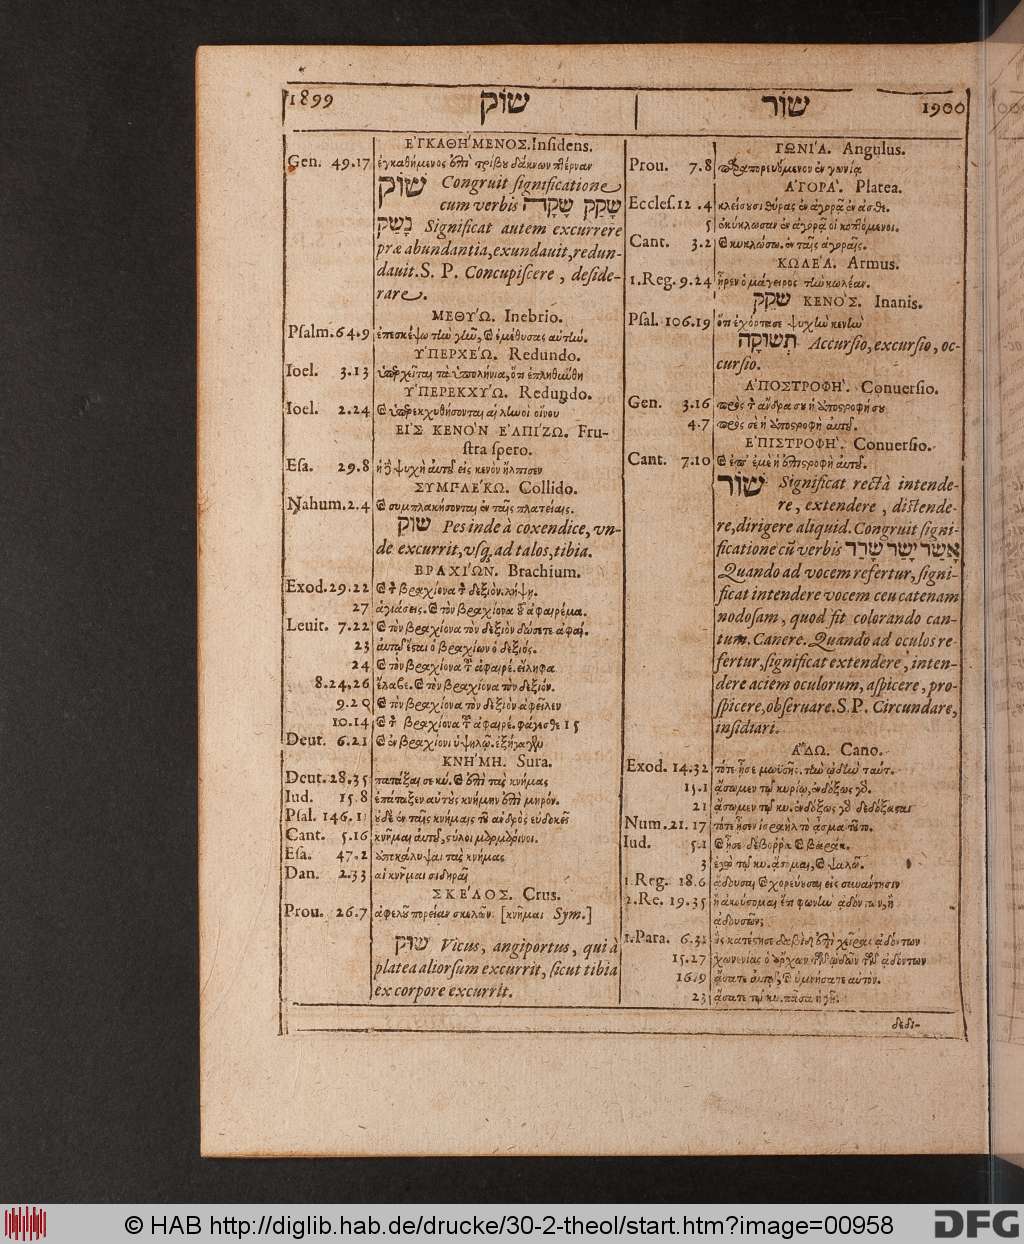 1899 שוק
ΕΓΚΑΘΉΜΕΝΟΣ. Insidens.
Gen. 49.17 ἐγκαθήμενος ἐπὶ τρίβου δάκνων πτέρναν
שוק Congruit significatione
cum verbis שָׁקַק שָׁקָה
נָשַׁק Significat autem excurrere
præ abundantia, exundauit, redun-
dauit. S. P. Concupiscere, deside-
rare.
ΜΕΘΥΏ. Inebrio.
Psalm. 64.9 ἐπεσκέψω τὴν γῆν, καὶ ἐμέθυσας αὐτήν.
ὙΠΕΡΧΕΏ. Redundo.
Ioel. 3.13 ὑπερχεῖται τὰ ὑπολήνια, ὅτι ἐπληθύνθη
ὙΠΕΡΕΚΧΥΏ. Redundo.
Ioel. 2.24 καὶ ὑπερεκχυθήσονται αἱ ληνοὶ οἴνου
ΕΙΣ ΚΕΝῸΝ ΕΛΠΙΖΩ. Fru-
stra spero.
Esa. 29.8 ἡ δὲ ψυχὴ αὐτοῦ εἰς κενὸν ἤλπισεν
ΣΥΜΠΛΕΚΩ. Collido.
Nahum. 2.4 καὶ συμπλακήσονται ἐν ταῖς πλατείαις.
שׁוק Pes inde à coxendice, vn-
de excurrit, vsq; ad talos, tibia.
ΒΡΑΧΙΏΝ. Brachium.
Exod. 29.22 καὶ τὸν βραχίονα τὸν δεξιόν. λήψῃ.
27 ἁγιάσεις. καὶ τὸν βραχίονα τοῦ ἀφαιρέμα.
Leuit. 7.22 καὶ τὸν βραχίονα τὸν δεξιὸν δώσετε ἀφαί.
23 αὐτῷ ἔσται ὁ βραχίων ὁ δεξιός.
24 καὶ τὸν βραχίονα τοῦ ἀφαιρέ. εἴληφα
8.24,26 ἔλαβε. καὶ τὸν βραχίονα τὸν δεξιόν.
9.20 καὶ τὸν βραχίονα τὸν δεξιὸν ἀφεῖλεν
10.14 καὶ τὸν βραχίονα τοῦ ἀφαιρέ. φάγεσθε 15
Deut. 6.21 καὶ ἐν βραχίονι ὑψηλῷ. ἐξήγαγεν
ΚΝΉΜΗ. Sura.
Deut. 28.35 πατάξαι σε κύ. καὶ ἐπὶ τὰς κνήμας
Iud. 15.8 ἐπάταξεν αὐτοὺς κνήμην ἐπὶ μηρόν.
Psal. 146.11 οὐδὲ ἐν ταῖς κνήμαις τοῦ ἀνδρὸς εὐδοκεῖ
Cant. 5.16 κνῆμαι αὐτοῦ, στύλοι μαρμάρινοι.
Esa. 47.2 ἀποκάλυψαι τὰς κνήμας
Dan. 2.33 αἱ κνῆμαι σιδηραῖ
ΣΚΈΛΟΣ. Crus.
Prou. 26.7 ἀφελοῦ πορείαν σκελῶν. [κνῆμαι Sym.]
שׁוּק Vicus, angiportus, qui à
platea aliorsum excurrit, sicut tibia
ex corpore excurrit.
שור 1900
ΓΩΝΙΑ. Angulus.
Prou. 7.8 παραπορευόμενον ἐν γωνίᾳ
ἈΓΟΡᾺ. Platea.
Eccles. 12.4 κλείσουσι θύρας ἐν ἀγορᾷ ἐν ἀσθε.
5 ἐκύκλωσαν ἐν ἀγορᾷ οἱ κοπτόμενοι.
Cant. 3.2 καὶ κυκλώσω. ἐν ταῖς ἀγοραῖς.
ΚΩΛΕΑ. Armus.
1. Reg. 9.24 ἦρεν ὁ μάγειρος τὴν κωλέαν.
שקק ΚΕΝΟΣ. Inanis.
Psal. 106.19 ὅτι ἐχόρτασε ψυχὴν κενὴν
תְשׁוּקָה Accursio, excursio, oc-
cursio.
ἈΠΟΣΤΡΟΦῊ. Conuersio.
Gen. 3.16 πρὸς τὸν ἄνδρα σου ἡ ἀποστροφή σου
4.7 πρὸς σὲ ἡ ἀποστροφὴ αὐτοῦ.
ἘΠΙΣΤΡΟΦῊ. Conuersio.
Cant. 7.10 καὶ ἐπ' ἐμὲ ἡ ἐπιστροφὴ αὐτοῦ.
שׁוּר Significat rectà intende-
re, extendere, distende-
re, dirigere aliquid. Congruit signi-
ficatione cū verbis אָשַׁר יָשַׁר שָׁרַר
Quando ad vocem refertur, signi-
ficat intendere vocem ceu catenam
nodosam, quod fit colorando can-
tum. Canere. Quando ad oculos re-
fertur, significat extendere, inten-
dere aciem oculorum, aspicere, pro-
spicere, obseruare. S. P. Circundare,
insidiari.
ἌΔΩ. Cano.
Exod. 14.32 τότε ᾖσε μωϋσῆς. τὴν ᾠδὴν ταύτ.
15.1 ᾄσωμεν τῷ κυρίῳ, ἐνδόξως γὰρ.
21 ᾄσωμεν τῷ κυ. ἐνδόξως γὰρ δεδόξασται
Num. 21.17 τότε ᾖσεν ἰσραὴλ τὸ ᾆσμα τοῦτο.
Iud. 5.1 καὶ ᾖσε δεβόρρα καὶ βαράκ.
3 ἐγὼ τῷ κυ. ᾄσομαι, καὶ ψαλῶ.
1. Reg. 18.6 ᾄδουσαι καὶ χορεύουσαι εἰς συνάντησιν
2. Re. 19.35 ἢ ἀκούσομαι ἔτι φωνὴν ᾀδόντων, ἢ
ᾀδουσῶν;
1. Para. 6.31 οὓς κατέστησε δαβὶδ ἐπὶ χεῖρας ᾀδόντων
15.27 χωνενίας ὁ ἄρχων τῶν ᾠδῶν τῶν ᾀδόντων
16.9 ᾄσατε αὐτῷ, καὶ ὑμνήσατε αὐτόν.
23 ᾄσατε τῷ κυ. πᾶσα ἡ γῆ.
δεδι-
© HAB http://diglib.hab.de/drucke/30-2-theol/start.htm?image=00958
DFG